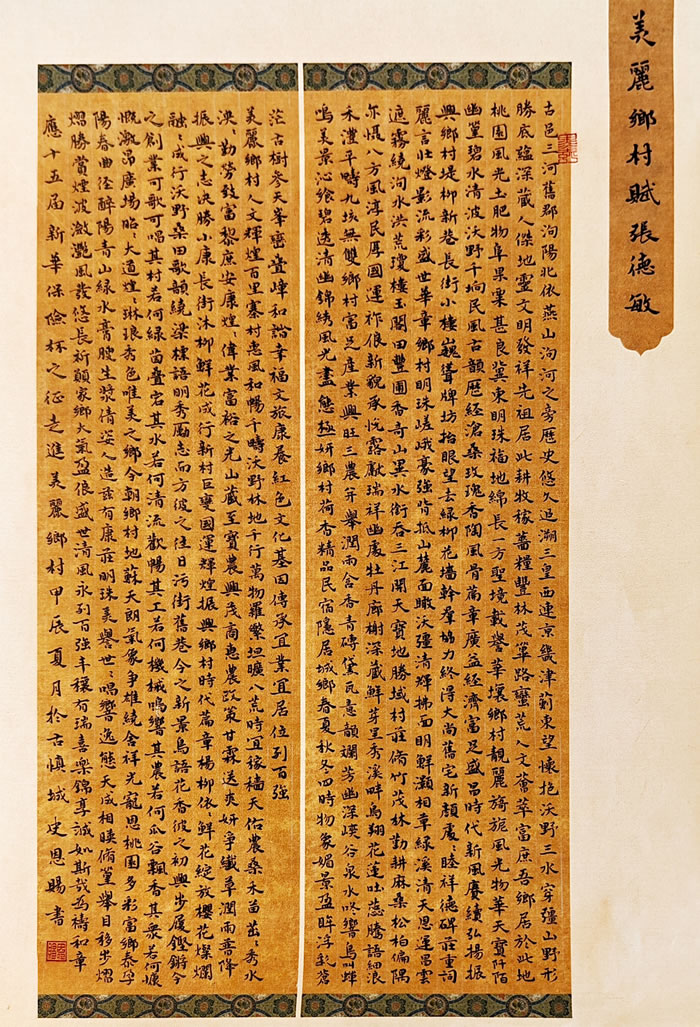 美麗鄉村賦張德敏
古邑三河舊郡泃陽北依燕山泃河之旁歷史悠久追溯三皇西連京畿津薊東望懷抱沃野三水穿彊山野形
勝底蘊深藏人傑地靈文明發祥先祖居此耕牧稼薔糧豐林茂篳路蠻荒人文薈萃富庶吾鄉居於此地
桃園風光土肥物阜果栗甚良冀東明珠福地綿長一方聖境載譽華壤鄉村靚麗旖旎風光物華天寶阡陌
幽篁碧水清波沃野千垧民風古韻歷經滄桑玫瑰香陶風骨萬章廣益經濟富足盛昌時代新風賡續弘揚振
興鄉村堤柳新巷長街小樓巍聳牌坊抬眼望去綠柳花墻幹羣協力終得大尚舊宅新顏處:睦祥德碑莊重詞
麗言壯燈影流彩盛世華章鄉村明珠嵯峨豪強背抵山麓面瞰沃彊清輝拂面明鮮灝相草綠溪清天恩運昌雲
遮霧繞泃水洪荒瓊樓玉閣田豐圃香奇山異水銜吞三江開天寶地勝域村莊脩竹茂林勤耕麻桑松柏偏隅
亦惧八方風淳民厚國運祚俍新貌承悅露獻瑞祥幽處牡丹廊榭深藏鮮芽呈秀溪畔鳥翔花蓬吐蕊騰語細浪
禾灃千疇九垓無雙鄉村富足產業興旺三農並舉潤雨含香青磚黛瓦意韻斕芳幽深峽谷泉水咚響鳥蟬
鳴美景沁飨碧透清幽錦綉風光盡態極妍鄉村荷香精品民宿隱居城鄉春夏秋冬四時物象媚景盈眸浮彩蒼
茫古樹參天峯巒疊嶂和諧幸福文旅康養紅色文化基因傳承宜業宜居位列百強
美麗鄉村人文輝煌百里寨村惠風和暢千疇沃野林地千行萬物羅繫坦曠八荒時宜稼穡天佑農桑禾苗茁:秀水
泱:勤勞致富黎庶安康煌:偉業富裕之光山藏至寶農興茂商惠農政策甘霖送爽妍爭纖草潤雨普降
振興之志決勝小康長街沐柳鮮花成行新村巨變國運輝煌振興鄉村時代萬章楊柳依:鮮花綻放櫻花燦斕
融:成行沃野桑田歌韻繞梁棟語明秀勵志而方彼之往日污街舊巷今之新景鳥語花香彼之初興步履鏗鏘今
之創業可歌可唱其村若何綠苗疊宕其水若何清流歡暢其工若何機械鳴響其農若何瓜谷飄香其衆若何慷
慨激昂廣場昭:大道煌:琳琅秀色唯美之鄉今朝鄉村地蘇天朗氣象爭雄繞舍祥光寵恩桃園多彩富鄉泰孕
陽春曲徑醉陽青山綠水膏腴生漿倩姿人造詠有康莊明珠美譽世:唱響逸態天成相暎脩篁舉目移步熠
熠勝賞煌波瀲灩風發悠長祈願家鄉大氣盈俍盛世清風永列百強丰穰有瑞喜樂錦享誠如斯哉為禱和章
應十五屆新華保險杯之征走進美麗鄉村甲辰夏月於古慎城史恩賜書